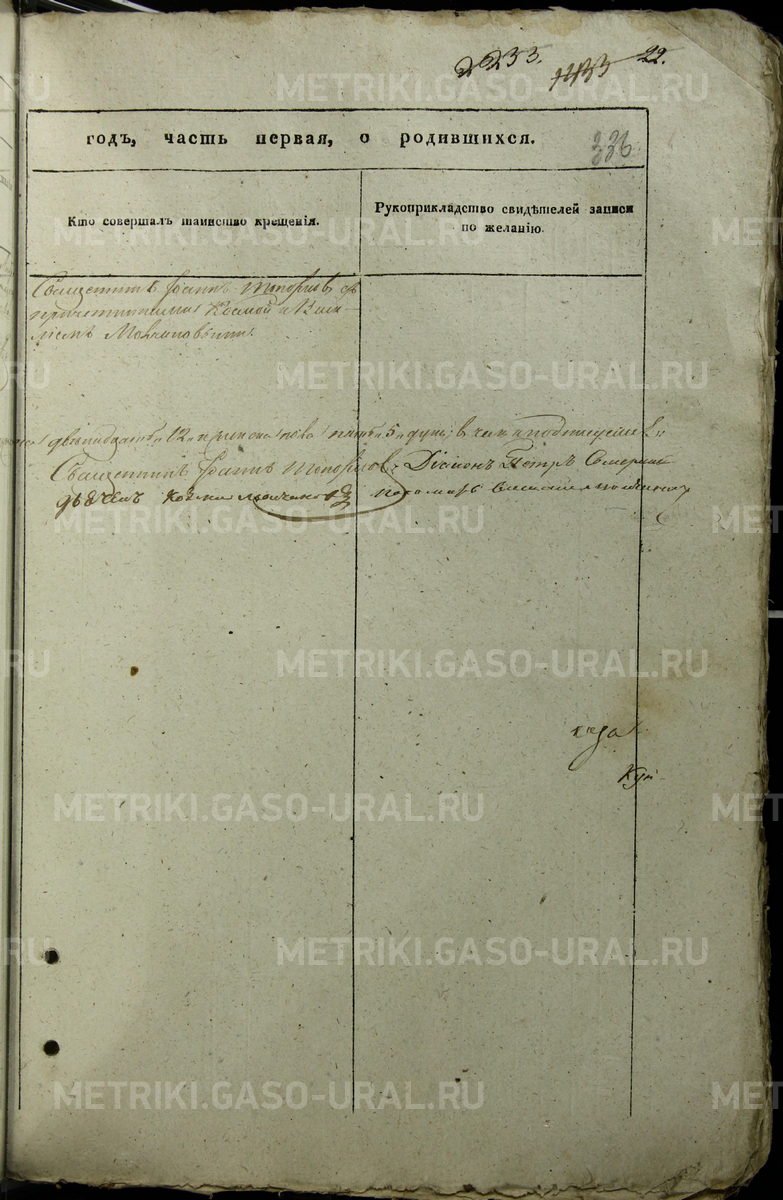 2233. 1433 22.
годъ, часть первая, о родившихся. 336
Кто совершалъ таинство крещенія.
Рукоприкладство свидѣтелей записи
по желанію.
Священникъ Іоаннъ Топорковъ съ
причетниками Космой и Васи-
ліемъ Молчановыми.
двенадцать 12 женска пола пять 5 душъ; въ чемъ и подписуемся
Священникъ Іоаннъ Топорковъ Діаконъ Петръ
Дьячекъ Косма Молчановъ пономарь Василій Молчановъ
METRIKI.GASO-URAL.RU